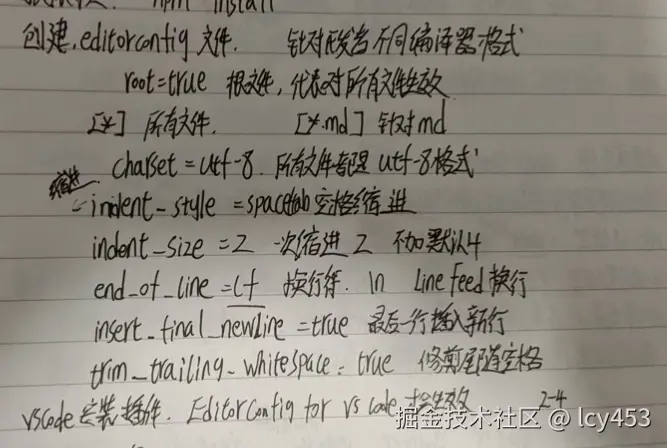 npm install
创建.editorconfig 文件. 针对开发者不同编译器格式
root=true 根文件,代表对所有文件生效
[*] 所有文件. [*.md] 针对md
charset = utf-8. 所有文件都是 utf-8格式
缩进
indent_style = space tab 空格缩进
indent_size = 2 一次缩进 2 不加默认4
end_of_line = lf 换行符. \n Line feed 换行
insert_final_newline = true 最后一行插入新行
trim_trailing_whitespace = true 修剪尾随空格
vscode安装插件. EditorConfig for vs code 才生效 2-4
掘金技术社区 @ lcy453